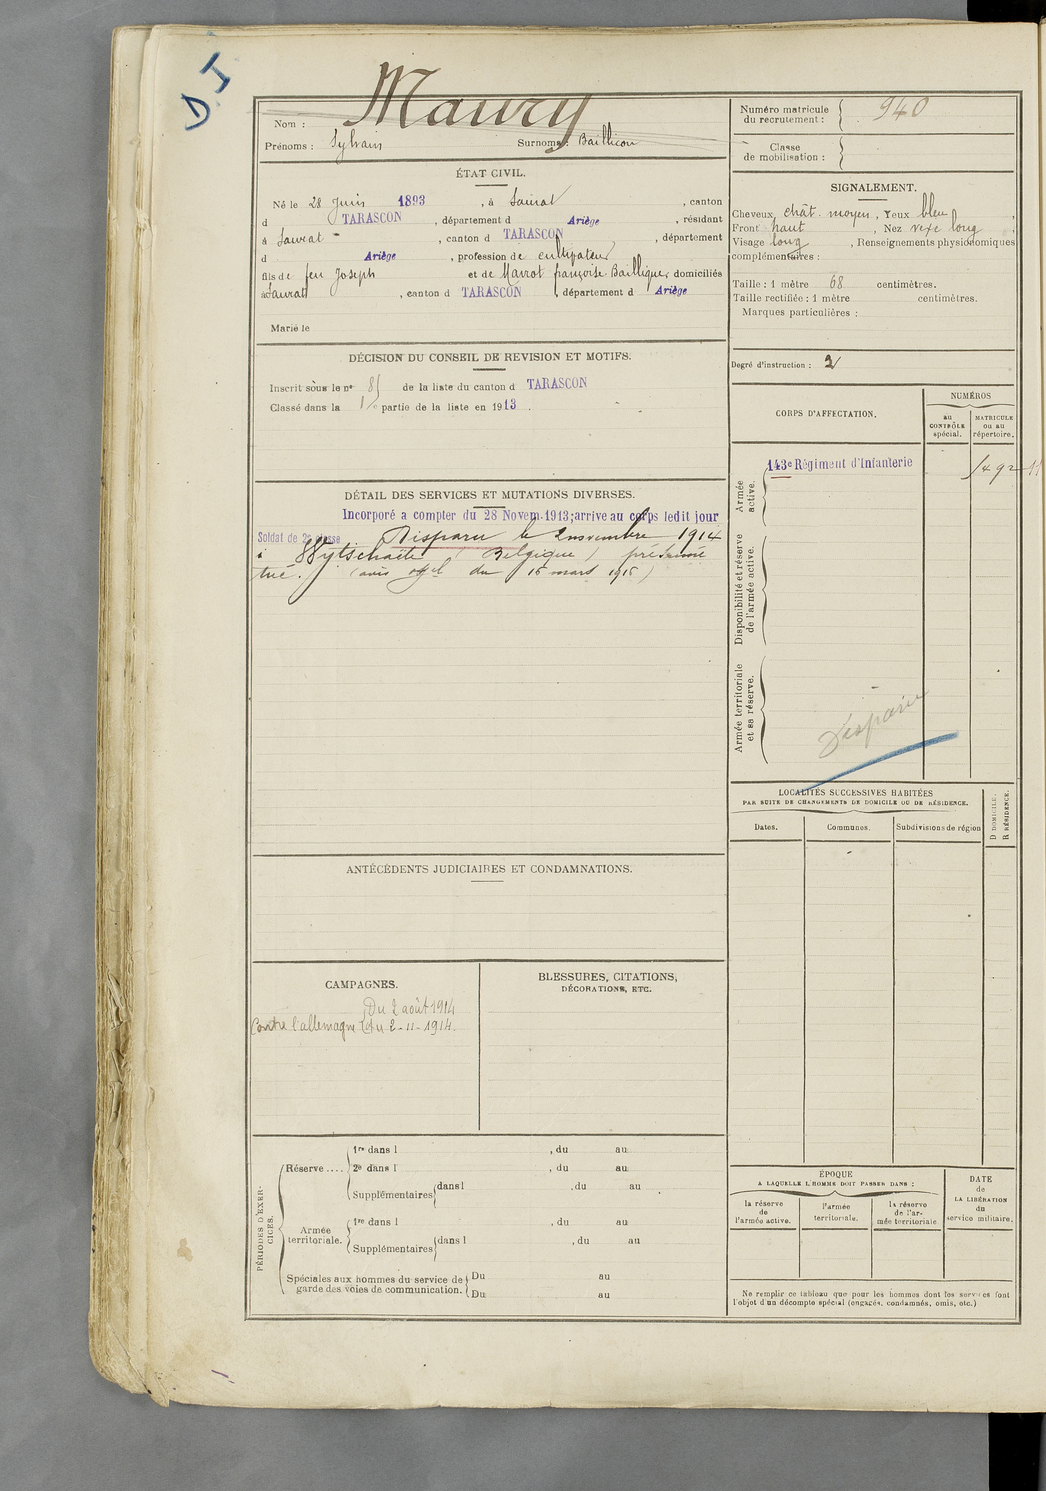 D I
Maury
Nom :
Prénoms : Sylvain Surnoms : Baillicou
ÉTAT CIVIL.
Né le 28 Juin 1893, à Saurat, canton
d TARASCON, département d Ariège, résidant
à Saurat, canton d TARASCON, département
d Ariège, profession de cultivateur
fils de feu Joseph et de Marrot françoise Baillique, domiciliés
à Saurat, canton d TARASCON, département d Ariège
Marié le
DÉCISION DU CONSEIL DE REVISION ET MOTIFS.
Inscrit sous le nº 85 de la liste du canton d TARASCON
Classé dans la 1re partie de la liste en 1913.
DÉTAIL DES SERVICES ET MUTATIONS DIVERSES.
Incorporé a compter du 28 Novem. 1913; arrive au corps ledit jour
Soldat de 2e classe Disparu le 2 novembre 1914
à Wytschaëte (Belgique) présumé
tué. (avis offel du 16 mars 1915)
ANTÉCÉDENTS JUDICIAIRES ET CONDAMNATIONS.
CAMPAGNES.
Du 2 août 1914
Contre l'allemagne au 2-11-1914.
BLESSURES, CITATIONS,
DÉCORATIONS, ETC.
PÉRIODES D'EXERCICES.
Réserve .... 1re dans l , du au
2e dans l , du au
Supplémentaires dans l , du au
Armée territoriale. 1re dans l , du au
Supplémentaires dans l , du au
Spéciales aux hommes du service de Du au
garde des voies de communication. Du au
Numéro matricule
du recrutement : 940
Classe
de mobilisation :
SIGNALEMENT.
Cheveux chât. moyen, Yeux bleu,
Front haut, Nez vexe long
Visage long, Renseignements physionomiques
complémentaires :
Taille : 1 mètre 68 centimètres.
Taille rectifiée : 1 mètre centimètres.
Marques particulières :
Degré d'instruction : 2
CORPS D'AFFECTATION.
NUMÉROS
au
CONTRÔLE
spécial.
MATRICULE
ou au
répertoire.
Armée
active.
143e Régiment d'Infanterie
Disponibilité et réserve
de l'armée active.
Armée territoriale
et sa réserve.
Disparu
LOCALITÉS SUCCESSIVES HABITÉES
PAR SUITE DE CHANGEMENTS DE DOMICILE OU DE RÉSIDENCE.
Dates. Communes. Subdivisions de région
D DOMICILE.
R RÉSIDENCE.
ÉPOQUE
A LAQUELLE L'HOMME DOIT PASSER DANS :
la réserve
de
l'armée active.
l'armée
territoriale.
la réserve
de l'ar-
mée territoriale
DATE
de
LA LIBÉRATION
du
service militaire.
Ne remplir ce tableau que pour les hommes dont les services font
l'objet d'un décompte spécial (engagés, condamnés, omis, etc.)